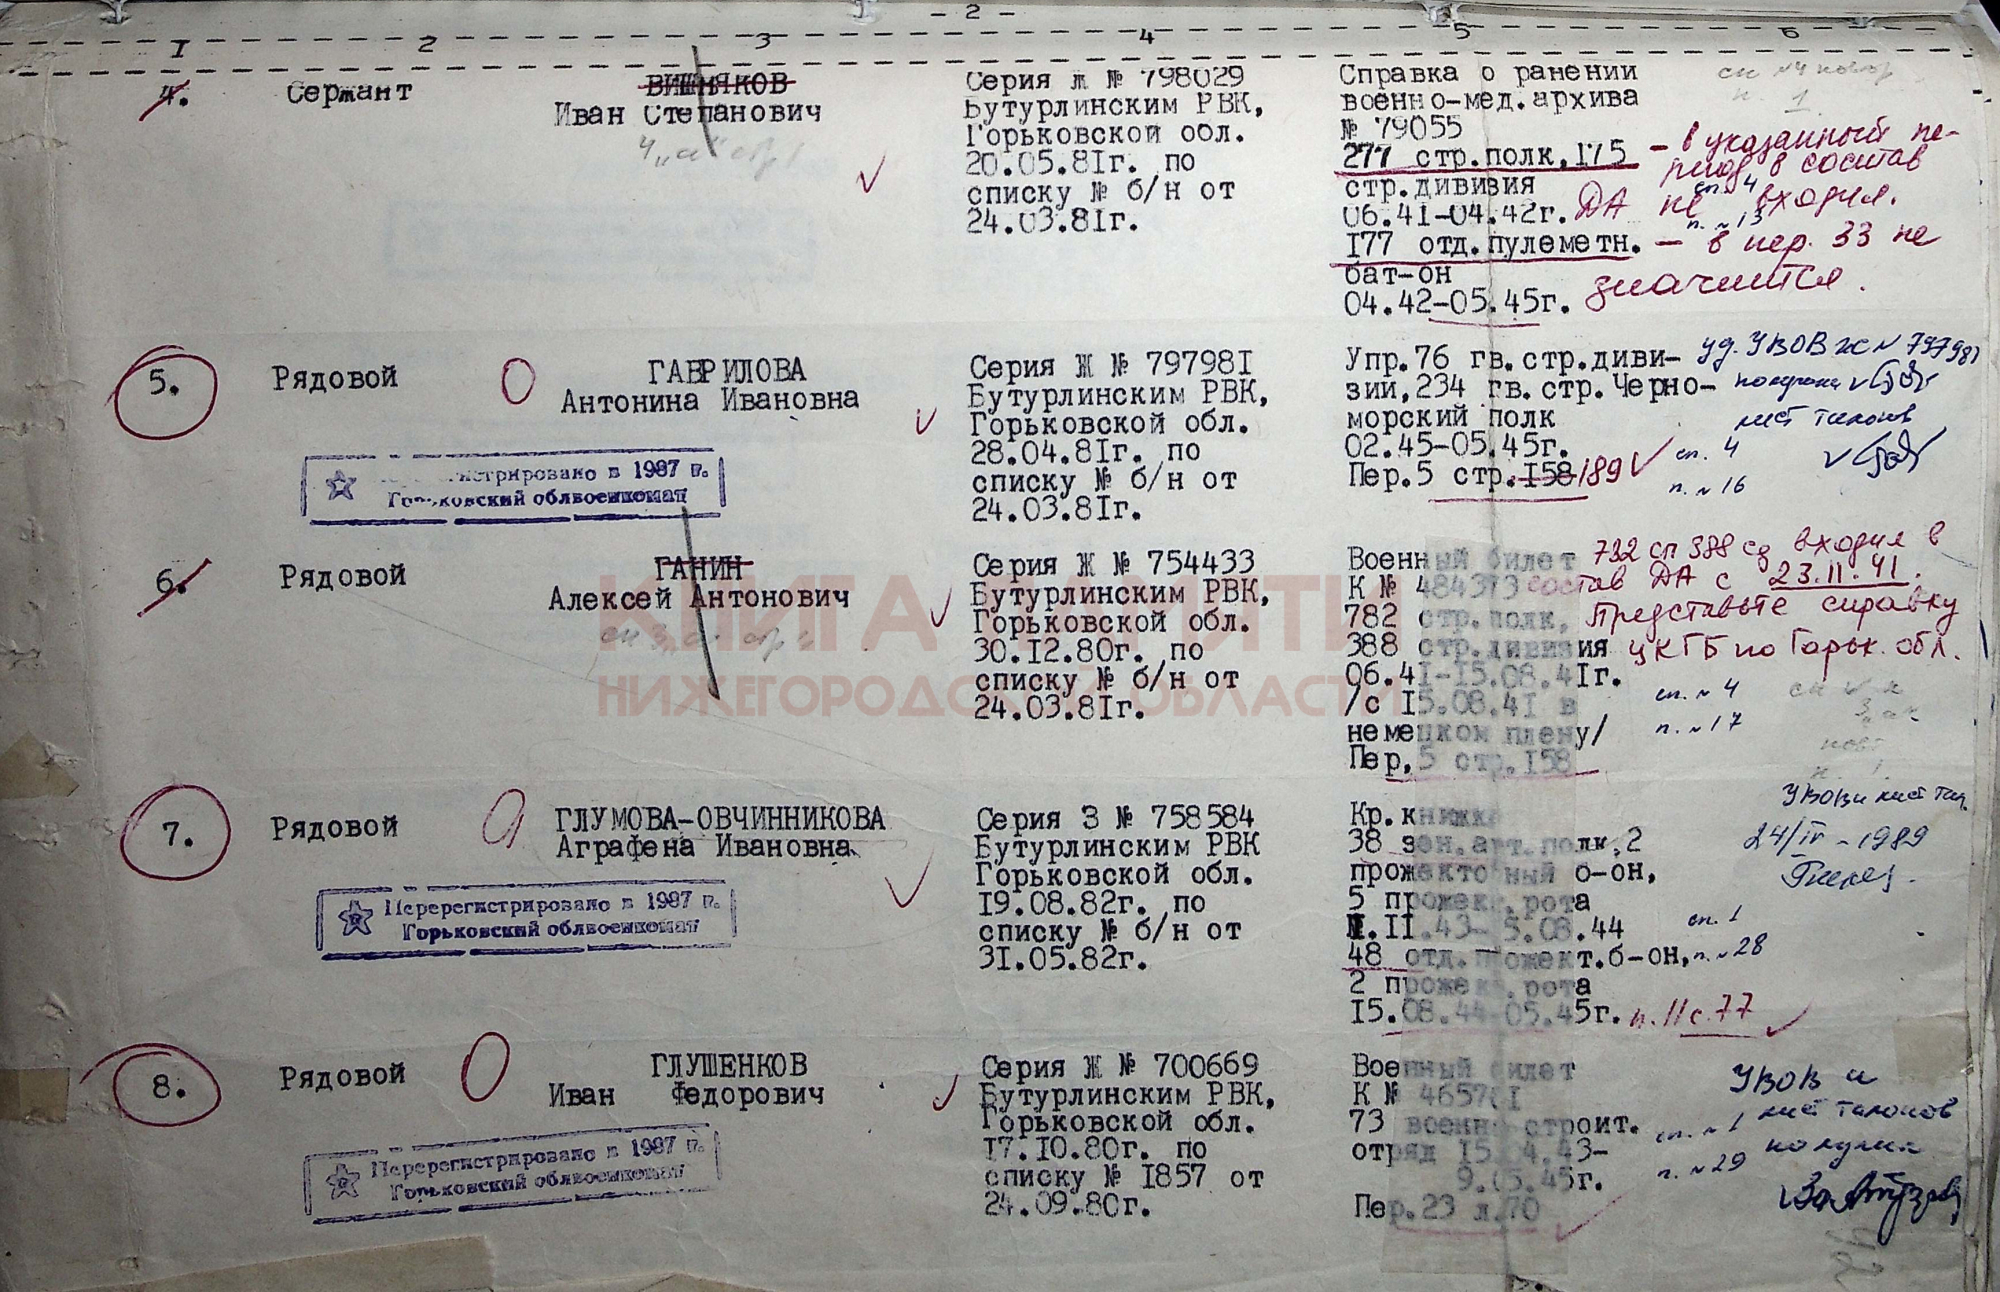 - 2 -
I 2 3 4 5 6
4. Сержант ВИШНЯКОВ
Иван Степанович
Серия Ж № 798029
Бутурлинским РВК,
Горьковской обл.
20.05.81г. по
списку № б/н от
24.03.81г.
Справка о ранении
военно-мед.архива
№ 79055
277 стр.полк,175
стр.дивизия
06.41-04.42г.
177 отд.пулеметн.
бат-он
04.42-05.45г.
- в указанный пе-
риод в состав
ДА не входил.
сп. 4
п. 13
- в пер. 33 не
значится.
5. Рядовой ГАВРИЛОВА
Антонина Ивановна
Серия Ж № 797981
Бутурлинским РВК,
Горьковской обл.
28.04.81г. по
списку № б/н от
24.03.81г.
Упр.76 гв.стр.диви-
зии,234 гв.стр.Черно-
морский полк
02.45-05.45г.
Пер.5 стр.158 189
уд. УВОВ Ж № 797981
лист талонов
сп. 4
п. № 16
регистрировано в 1987 г.
Горьковский облвоенкомат
6. Рядовой ГАНИН
Алексей Антонович
Серия Ж № 754433
Бутурлинским РВК,
Горьковской обл.
30.12.80г. по
списку № б/н от
24.03.81г.
Военный билет
К № 484373
782 стр.полк,
388 стр.дивизия
06.41-15.08.41г.
/с 15.08.41 в
немецком плену/
Пер.5 стр.158
732 сп 388 сд входил в
состав ДА с 23.11.41.
Представьте справку
УКГБ по Горьк. обл.
сп. № 4
п. № 17
КНИГА ПАМЯТИ
НИЖЕГОРОДСКОЙ ОБЛАСТИ
7. Рядовой ГЛУМОВА-ОВЧИННИКОВА
Аграфена Ивановна
Серия З № 758584
Бутурлинским РВК
Горьковской обл.
19.08.82г. по
списку № б/н от
31.05.82г.
Кр.книжка
38 зен.арт.полк,2
прожекторный б-он,
5 прожект.рота
II.43- 5.08.44
48 отд.прожект.б-он,
2 прожект.рота
15.08.44-05.45г.
п. 11 с. 77
УВОВ и лист тал.
24/IV - 1989
сп. 1
п. № 28
Перерегистрировано в 1987 г.
Горьковский облвоенкомат
8. Рядовой ГЛУШЕНКОВ
Иван Федорович
Серия Ж № 700669
Бутурлинским РВК,
Горьковской обл.
17.10.80г. по
списку № 1857 от
24.09.80г.
Военный билет
К №
73 военн строит.
отряд 15.04.43-
9.05.45г.
Пер.23 л.70
УВОВ и
лист талонов
получил
сп. № 1
п. № 29
Перерегистрировано в 1987 г.
Горьковский облвоенкомат